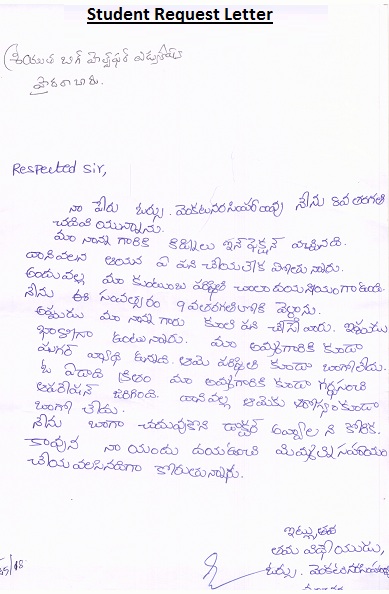 Student Request Letter
శ్రీయుత బిగ్ హెల్ప్ ఫర్ ఎడ్యుకేషన్
హైదరాబాదు.
Respected Sir,
నా పేరు ఓర్సు. వెంకటనరసింహారావు నేను 8వ తరగతి
చదివి యున్నాను.
మా నాన్న గారికి కిడ్నీలు ఇన్ఫెక్షన్ వచ్చినది.
దానివలన ఆయన ఏ పని చేయలేక
అందువల్ల మా కుటుంబ పరిస్థితి చాలా దయనీయంగా ఉంది.
నేను ఈ సంవత్సరం 9 వతరగతిలోనికి వెళ్లాను.
మా నాన్న గారు కూలి పని చేసేవారు. ఇప్పుడు
ఖాళీగా ఉంటున్నారు. మా అమ్మగారికి కూడా
షుగర్ వ్యాధి ఉన్నది. ఆమె పరిస్థితి కూడా బాగాలేదు.
ఓ ఏడాది క్రితం మా అమ్మగారికి కూడా గర్భసంచి
ఆపరేషన్ జరిగింది. దానివల్ల ఆమెకు ఆరోగ్యం కూడా
బాగా లేదు.
నేను బాగా చదువుకొని డాక్టర్ అవ్వాలని కోరిక.
కావున నా యందు దయవుంచి సహాయం
చేయవలసినదిగా కోరుతున్నాను.
ఇట్లు,
తమ విధేయుడు,
ఓర్సు. వెంకటనరసింహారావు